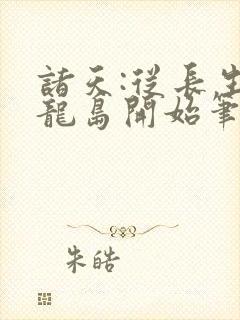 諸天:從長生
龍島開始筆
朱皓